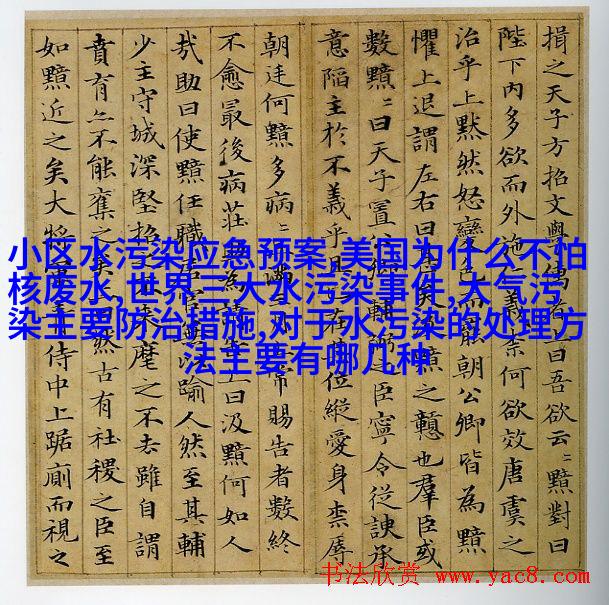 揖之天子方招文學儒者上曰吾欲云〻黯對曰
陛下内多欲而外施仁義柰何欲效唐虞之
治乎上默然怒變色而罷朝公卿皆為黯
懼上退謂左右曰甚矣黯之戇也羣臣或
數黯〻曰天子置公卿輔弼之臣寧令從諛承
意陷主於不義乎且在其位縱愛身柰辱
朝廷何黯多病〻滿常賜告者數終
不愈最後病莊助為請告曰汲黯何如人
哉助曰使黯任職居官無以踰人然至其輔
少主守城深堅招之不来麾之不去雖自謂
賁育亦不能奪之矣上曰然古有社稷之臣至
如黯近之矣大將軍青侍中上踞廁而視之
小区水污染应急预案,美国为什么不怕
核废水,世界三大水污染事件,大气污
染主要防治措施,对于水污染的处理方
法主要有哪几种
书法欣赏 www.yac8.com